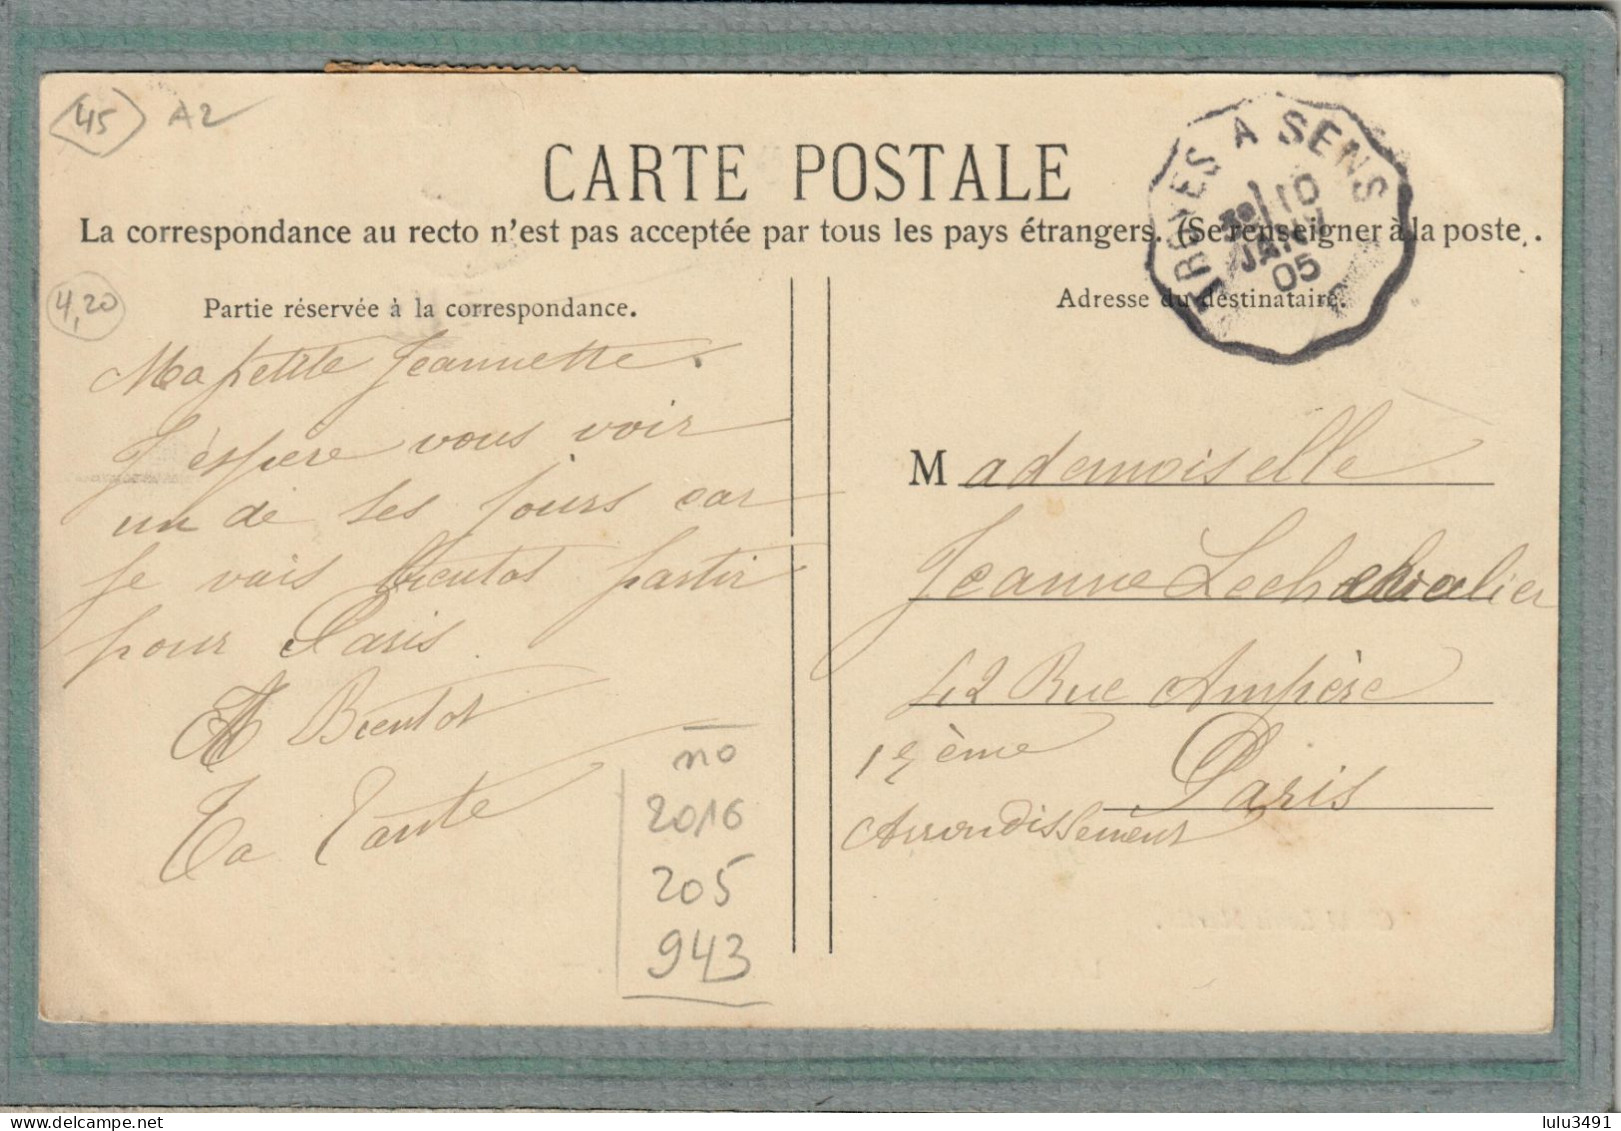 45 A2
CARTE POSTALE
La correspondance au recto n'est pas acceptée par tous les pays étrangers. (Se renseigner à la poste.
TROYES A SENS
10
JANV
05
4,20
Partie réservée à la correspondance.
Ma petite Jeannette.
J'espère vous voir
un de ses jours car
je vais bientot partir
pour Paris.
A Bientot
Ta Tante
no
2016
205
943
Adresse du destinataire.
Mademoiselle
Jeanne
42 Rue Ampère
Paris
ème
Arrondissement
lulu3491